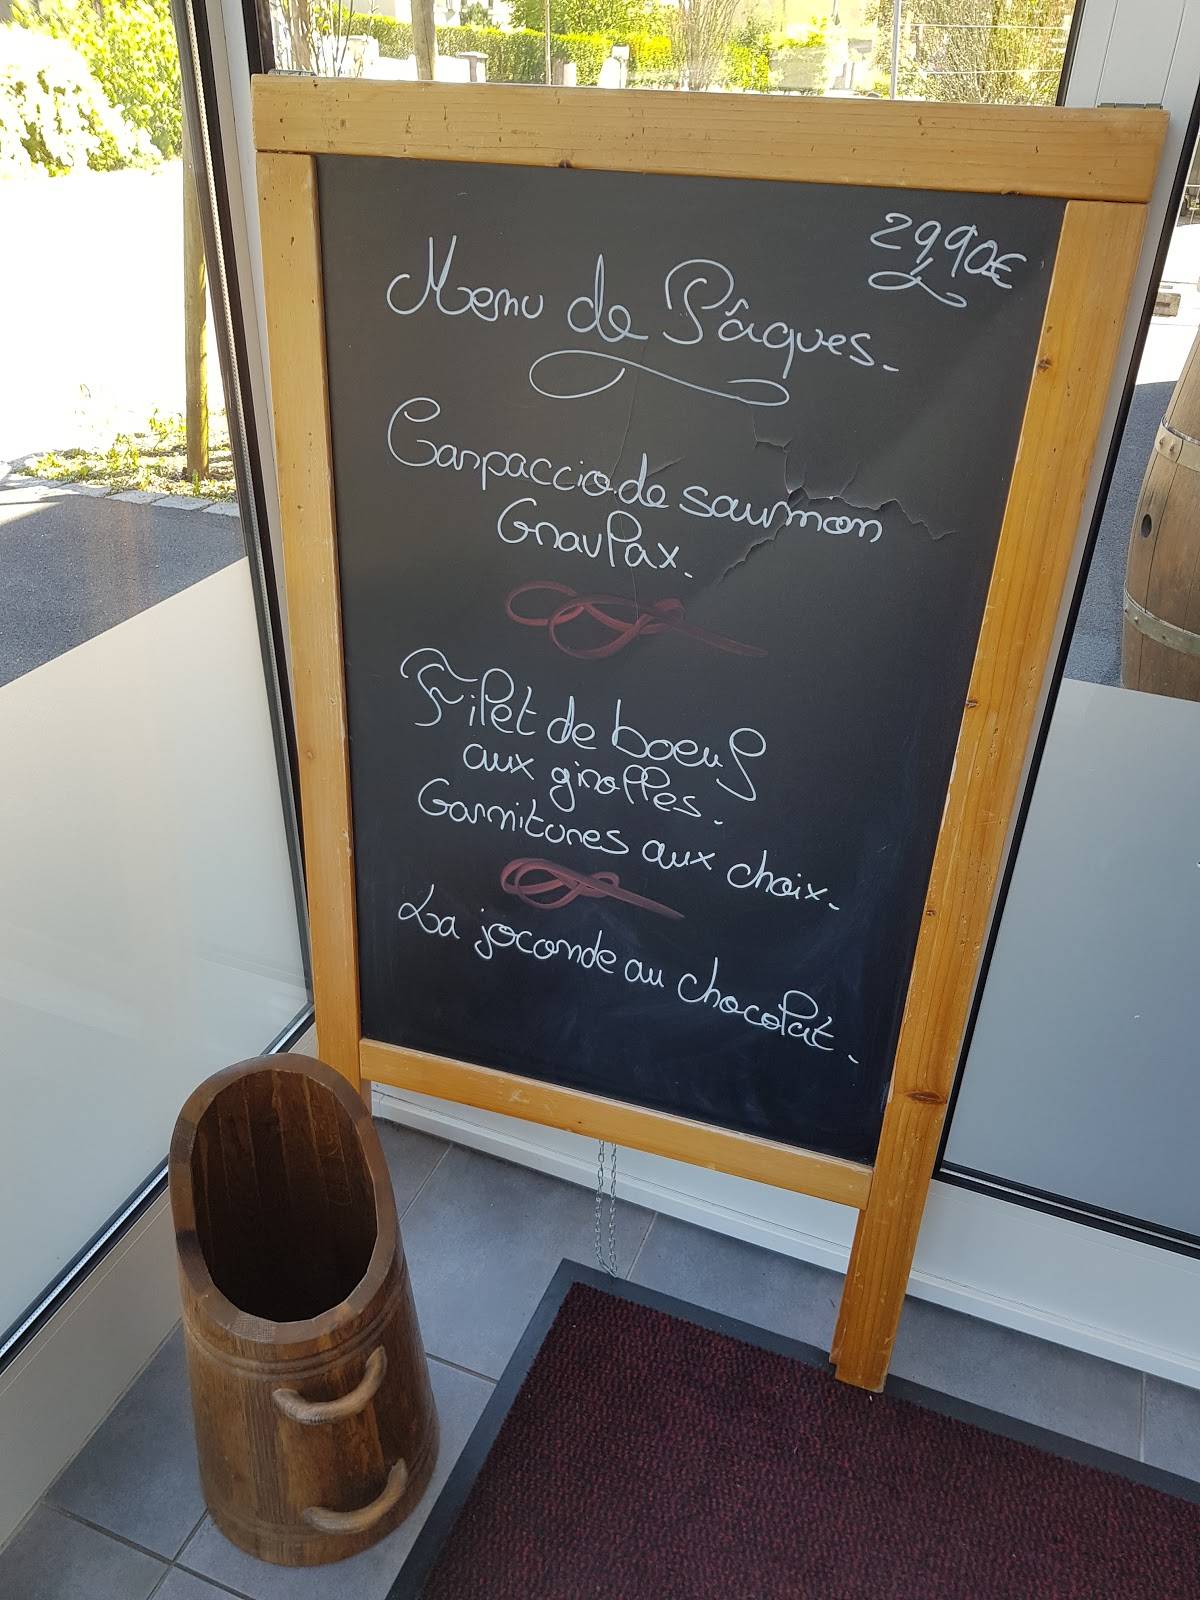 29,90€
Menu de Pâques.
Carpaccio de saumon
Gravlax.
Filet de boeuf
aux girolles.
Garnitures aux choix.
La joconde au chocolat.